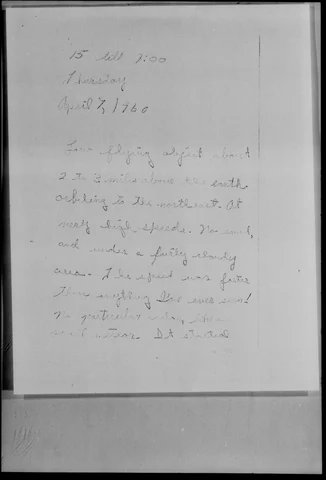 15 till 9:00
Thursday
April 7, 1960
Low flying object about
2 to 3 miles above the earth
to the northeast. At
high speeds. No sound,
and under a fairly cloudy
area. The speed was faster
than anything I've ever seen!
No particular color,
It started